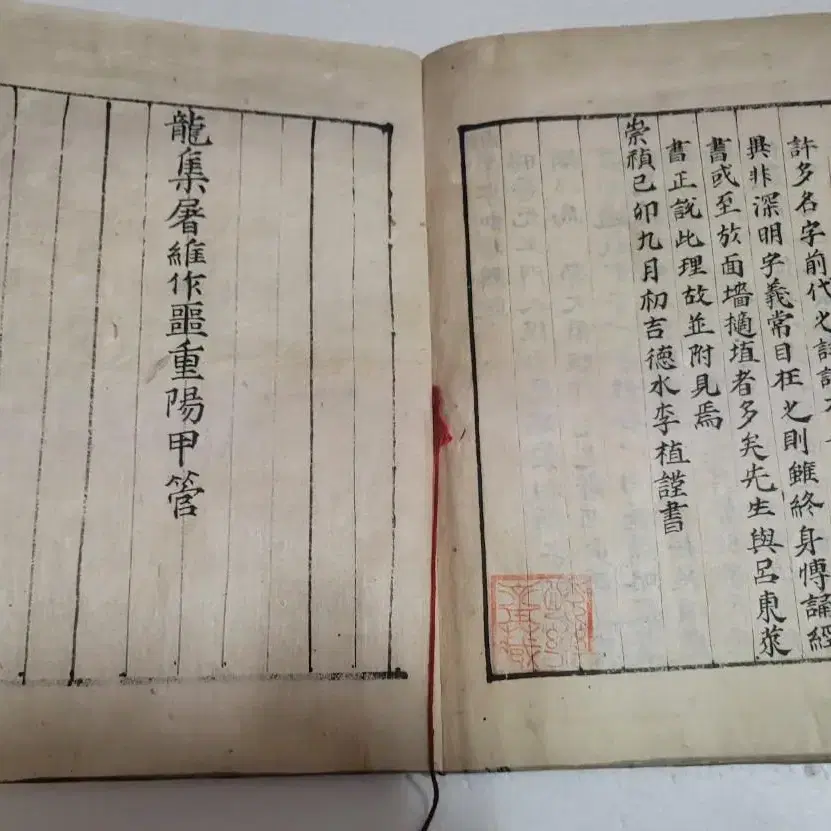 許多名字前代之
與非深明字義常目在之則雖終身博誦經
書或至於面墻擿埴者多矣先生與呂東萊
書正說此理故並附見焉
崇禎己卯九月初吉德水李植謹書
龍集屠維作噩重陽甲營